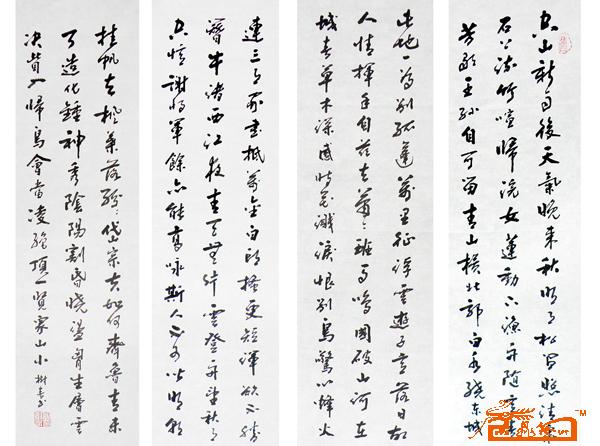 空山新雨後天氣晚來秋明月松間照清泉
石上流竹喧歸浣女蓮動下漁舟隨意春
芳歇王孫自可留青山橫北郭白水繞東城
此地一為別孤蓬萬里征浮雲遊子意落日故
人情揮手自茲去蕭〻班馬鳴國破山河在
城春草木深感時花濺淚恨別鳥驚心烽火
連三月家書抵萬金白頭搔更短渾欲不勝
簪牛渚西江夜青天無片雲登舟望秋月
空憶謝將軍餘亦能高詠斯人不可聞明朝
挂帆去楓葉落紛〻岱宗夫如何齊魯青未
了造化鍾神秀陰陽割昏曉盪胸生層雲
決眥入歸鳥會當凌絕頂一覽衆山小
TM